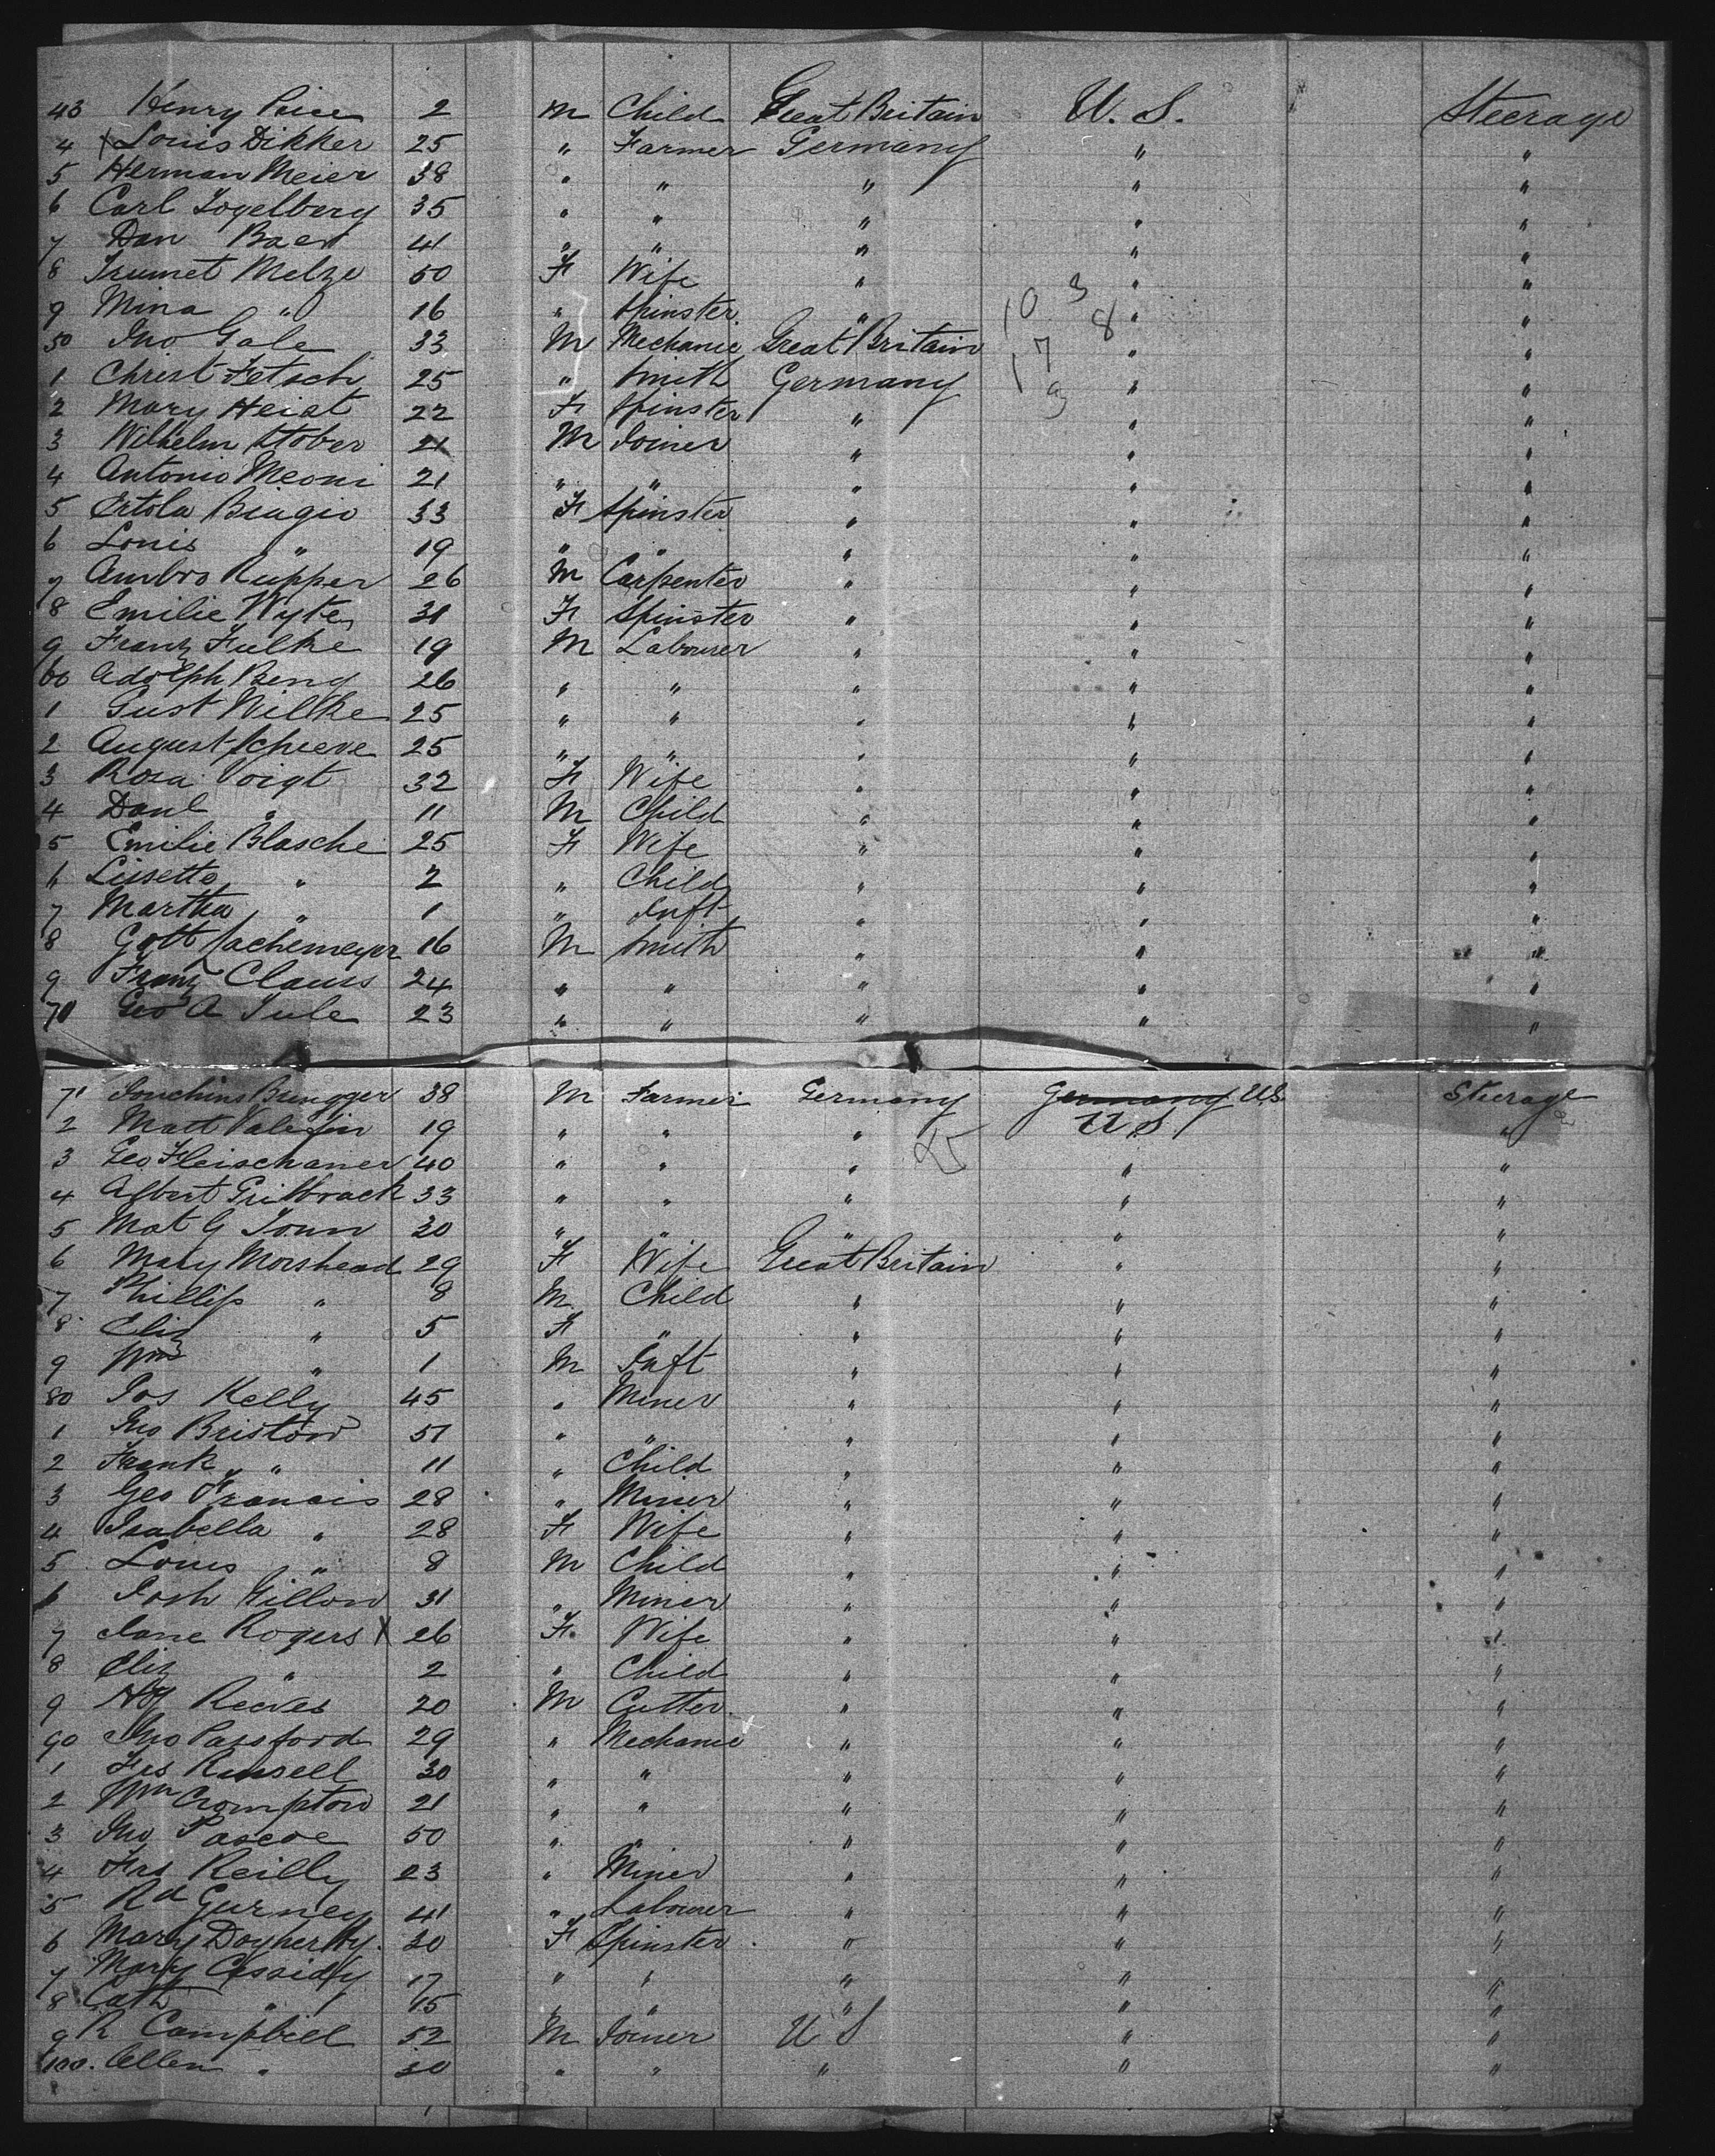 43 Henry Price 2 M Child Great Britain U. S. Steerage
4 X Louis Dikker 25 " Farmer Germany " "
5 Herman Meier 38 " " " " "
6 Carl Fogelberg 35 " " " " "
7 Dan Baer 41 " " " " "
8 Melze 50 F Wife " " "
9 Mina " 16 " Spinster " " "
50 Jno Gale 33 M Mechanic Great Britain " "
1 Christ Fetsch 25 " Smith Germany " "
2 Mary Heiat 22 F Spinster " " "
3 Wilhelm Stober 21 M Joiner " " "
4 Antonio Meoni 21 " " " " "
5 Ertola Biagio 33 F Spinster " " "
6 Louis " 19 " " " " "
7 Ambro Rupper 26 M Carpenter " " "
8 Emilie Wyte 31 F Spinster " " "
9 Franz Fulke 19 M Labourer " " "
60 Adolph Beng 26 " " " " "
1 Gust Wilke 25 " " " " "
2 August Schieve 25 " " " " "
3 Rosa Voigt 32 F Wife " " "
4 Danl " 11 M Child " " "
5 Emilie Blasche 25 F Wife " " "
6 Lisette " 2 " Child " " "
7 Martha " 1 " Inft " " "
8 Gott Sachemeyer 16 M Smith " " "
9 Franz Clauss 24 " " " " "
70 Geo A Tule 23 " " " " "
71 Brugger 38 M Farmer Germany Germany US Steerage
2 Matt Valentin 19 " " " U S "
3 Geo Fleischaner 40 " " " " "
4 Albert 33 " " " " "
5 Mat G 30 " " " " "
6 Mary Morshead 29 F Wife Great Britain " "
7 Phillip " 8 M Child " " "
8 Eliz " 5 F " " " "
9 Wm " 1 M Inft " " "
80 Jos Kelly 45 " Miner " " "
1 Jno Bristow 51 " " " " "
2 Frank " 11 " Child " " "
3 Geo Francis 28 " Miner " " "
4 Isabella " 28 F Wife " " "
5 Louis " 8 M Child " " "
6 Josh Gillon 31 " Miner " " "
7 Jane Rogers X 26 F Wife " " "
8 Eliz " 2 " Child " " "
9 Hy Reeves 20 M Cutter " " "
90 Jno Passford 29 " Mechanic " " "
1 Fes Russell 30 " " " " "
2 Wm Crompton 21 " " " " "
3 Jno Pascoe 50 " " " " "
4 Fras Reilly 23 " Miner " " "
5 Rd Gurney 41 " Labourer " " "
6 Mary Dogherty 30 F Spinster " " "
7 Mary Cassidy 17 " " " " "
8 Cath " 15 " " " " "
9 R Campbell 52 M Joiner U S " "
100. Allen " 30 " " " " "